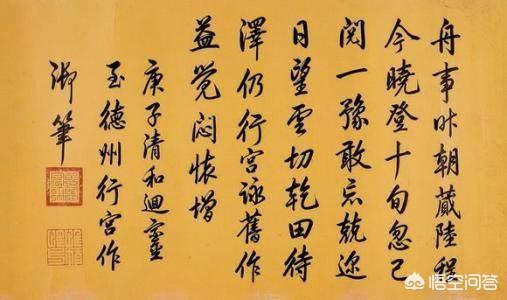 舟事昨朝蕆陸程
今曉登十旬忽已
閱一豫敢忘兢迩
日望雲切乾田待
澤仍行宮詠舊作
益覺悶懷增
庚子清和迴鑾
至德州行宮作
御筆
悟空问答